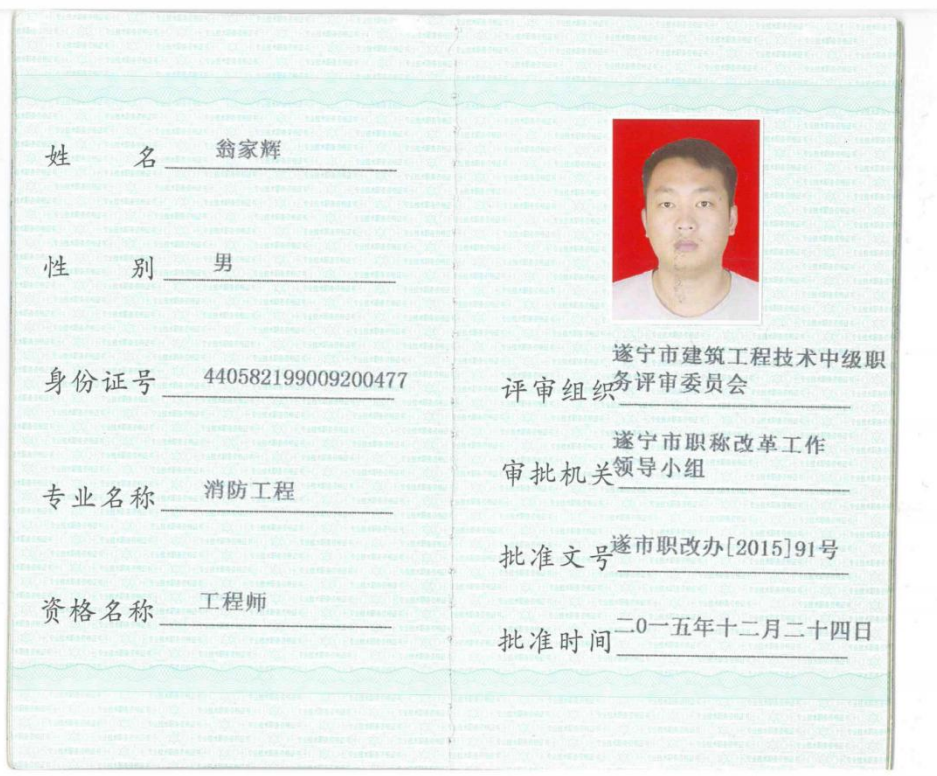 姓 名 翁家辉
性 别 男
身份证号 440582199009200477
专业名称 消防工程
资格名称 工程师
评审组织 遂宁市建筑工程技术中级职
务评审委员会
审批机关 遂宁市职称改革工作
领导小组
批准文号 遂市职改办[2015]91号
批准时间 二0一五年十二月二十四日